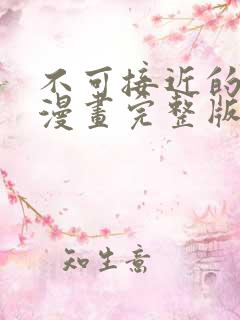 不可接近的
漫畫完整版
知生意